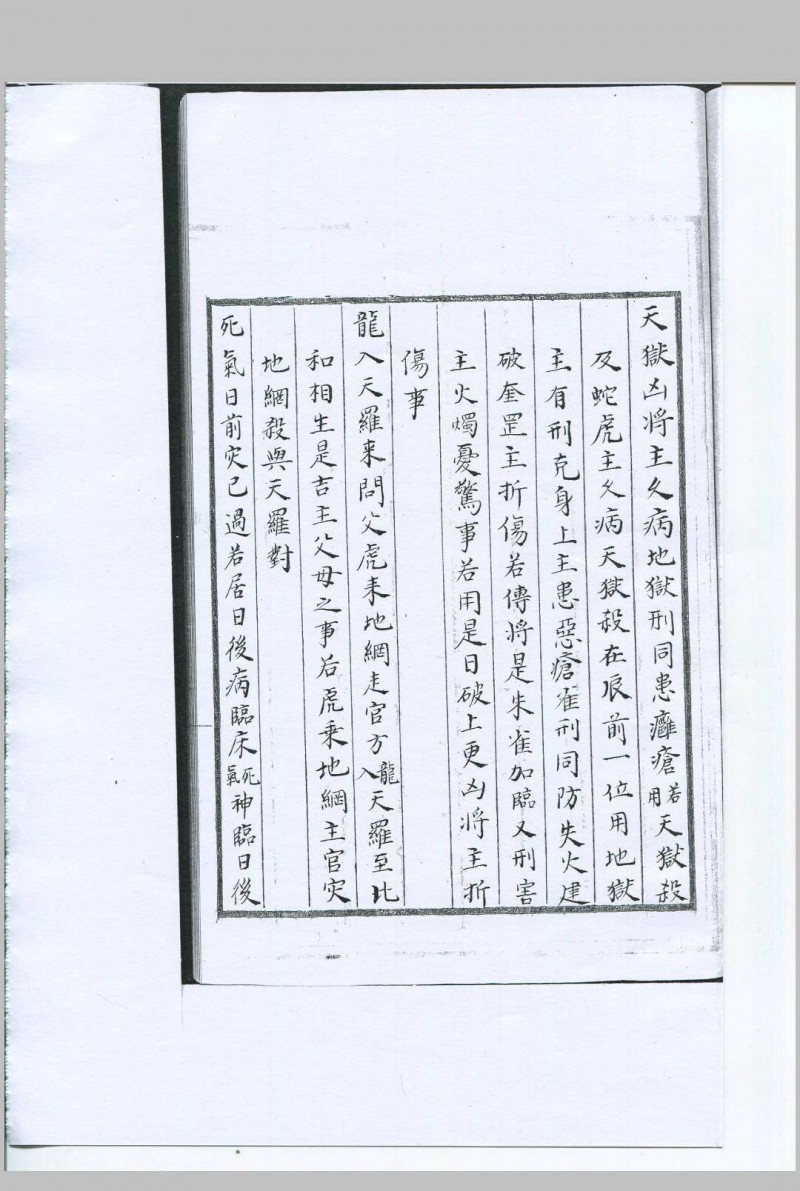 天獄凶将主久病地獄刑同患癰瘡若用天獄殺
及蛇虎主久病天獄殺在辰前一位用地獄
主有刑克身上主患惡瘡雀刑同防失火建
破奎罡主折傷若傳将是朱雀加臨又刑害
主火燭憂驚事若用是日破上更凶将主折
傷事
龍入天羅来問父虎来地網走官方龍入天羅至比
和相生是吉主父母之事若虎乘地網主官灾
地網殺與天羅對
死氣日前灾已過若居日後病臨床死氣神臨日後